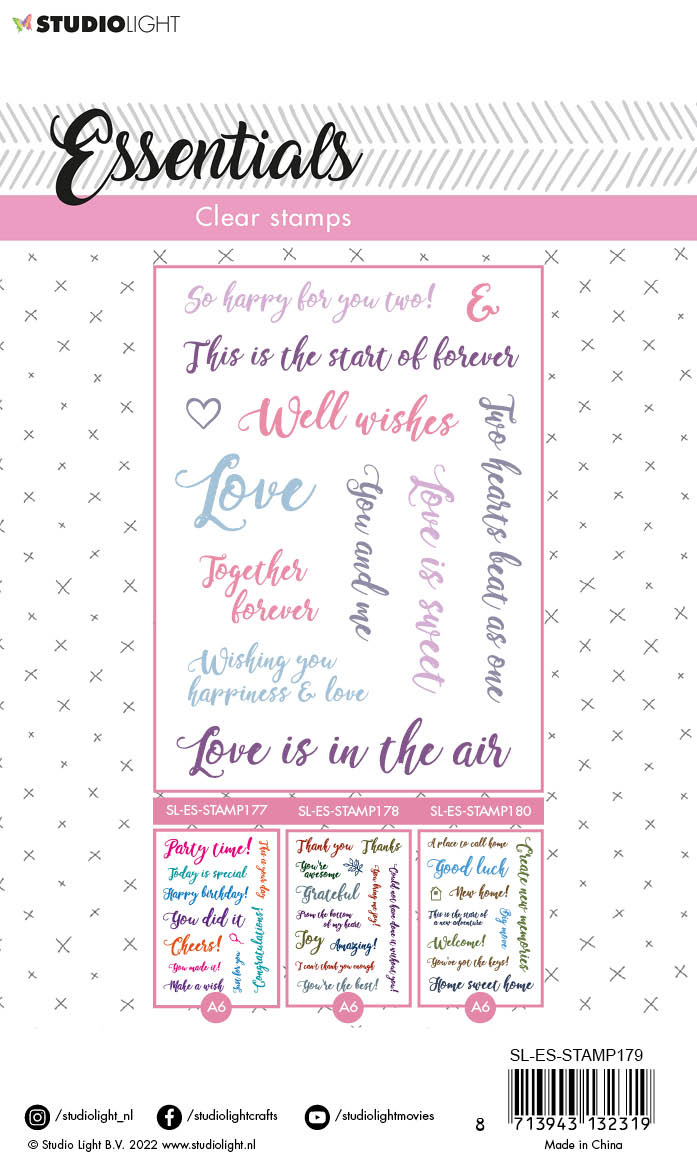 STUDIOLIGHT
Essentials
Clear stamps
So happy for you two!
&
This is the start of forever
Well wishes
Two hearts beat as one
Love
You and me
Love is sweet
Together
forever
Wishing you
happiness & love
Love is in the air
SL-ES-STAMP177
SL-ES-STAMP178
SL-ES-STAMP180
Party time!
This is your day
Today is special
Happy birthday!
You did it
Cheers!
Congratulations!
You made it!
Just for you
Make a wish
A6
Thank you
Thanks
You're
awesome
Grateful
You bring me joy!
Could not have done it without you!
From the bottom
of my heart
Joy
Amazing!
I can't thank you enough
You're the best!
A6
A place to call home
Good luck
Create new memories
New home!
This is the start of
a new adventure
Big move
Welcome!
You've got the keys!
Home sweet home
A6
SL-ES-STAMP179
8 713943 132319
/studiolight_nl
/studiolightcrafts
/studiolightmovies
© Studio Light B.V. 2022 www.studiolight.nl
Made in China